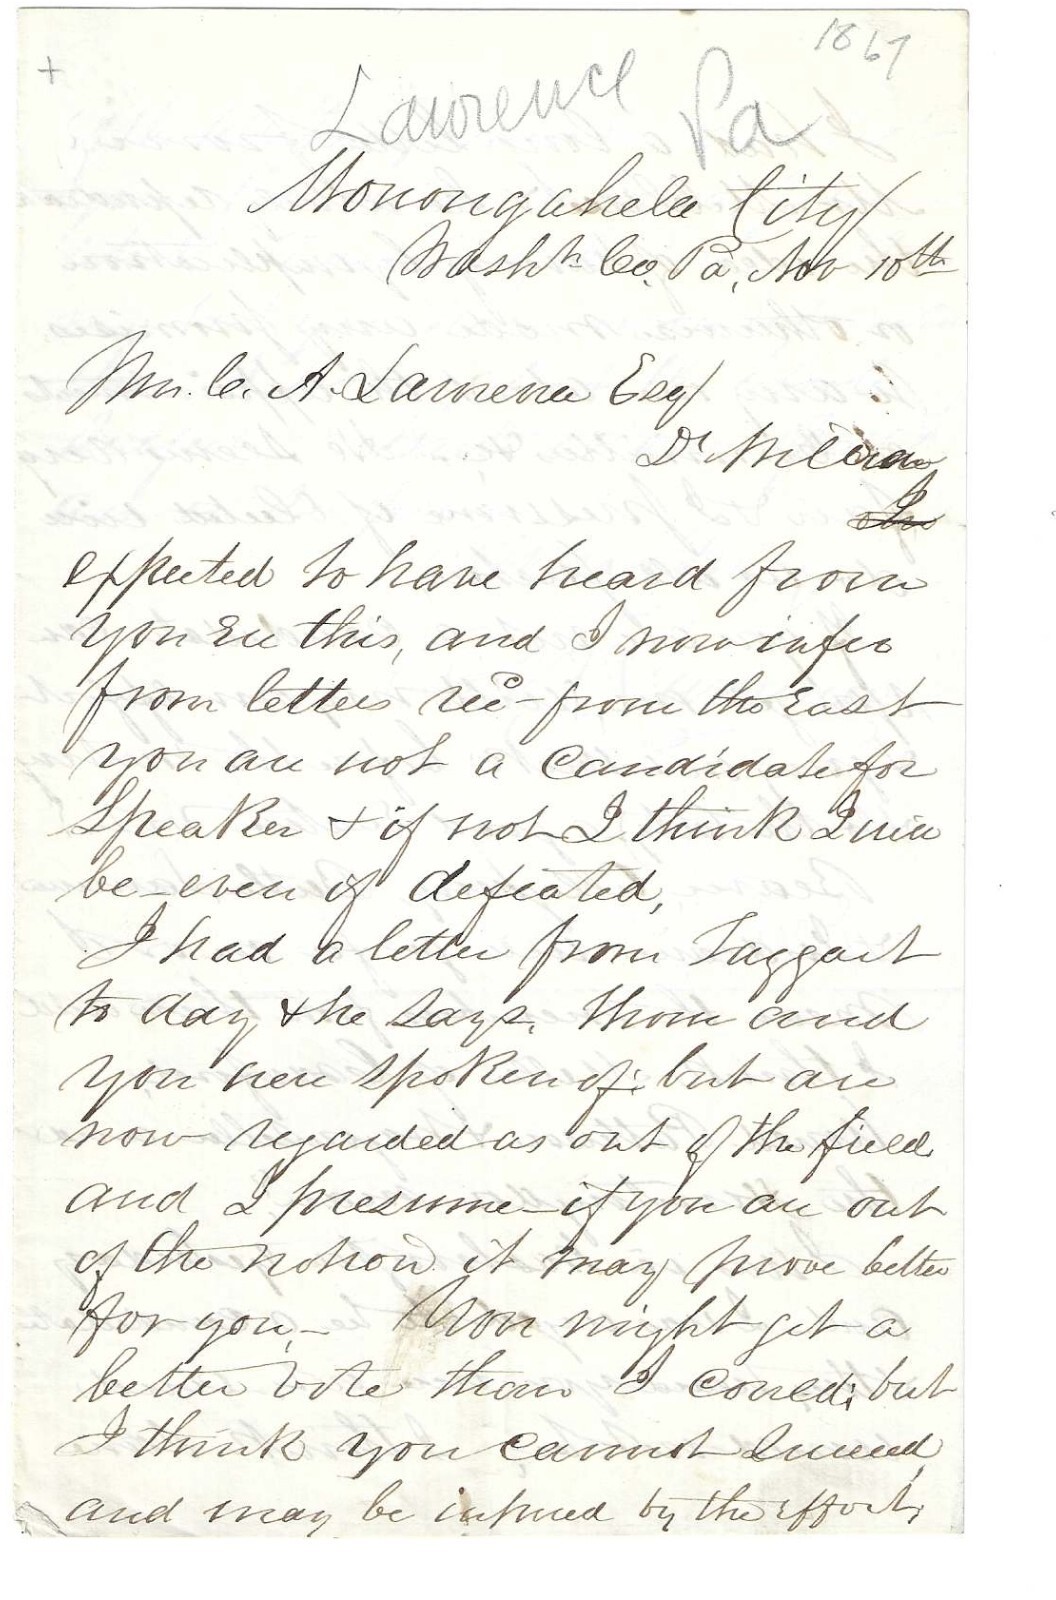 1867
+
Lawrence Pa
Monongahela City
Washn Co, Pa, Nov 10th
Wm. C. A. Lawrence Esq
Dr
expected to have heard from
you ere this, and I now infer
from letters recd from the East
you are not a candidate for
Speaker & if not I think I will
be even if defeated,
I had a letter from Taggart
to day & he says, Thom and
you were spoken of; but are
now regarded as out of the field.
and I presume if you are out
of the notion it may prove better
for you, - You might get a
better vote than I could; but
I think you cannot succeed,
and may be injured by the effort,